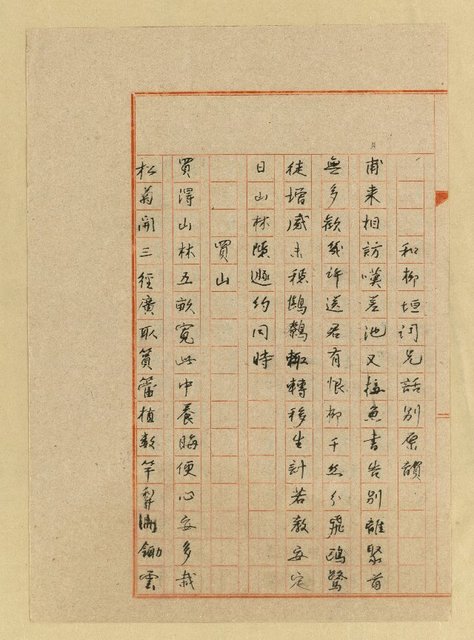 和柳垣詞兄話別原韻
甫來相訪嘆差池又接魚書告別離聚首
無多歡幾許送君有恨柳千絲分飛鷗鷺
徒增感未穩鷦鷯輒轉移生計若教安定
日山林隱遯約同時
買山
買得山林五畝寬此中養晦便心安多栽
松菊開三徑廣取篔簹植數竿犁鋤雲